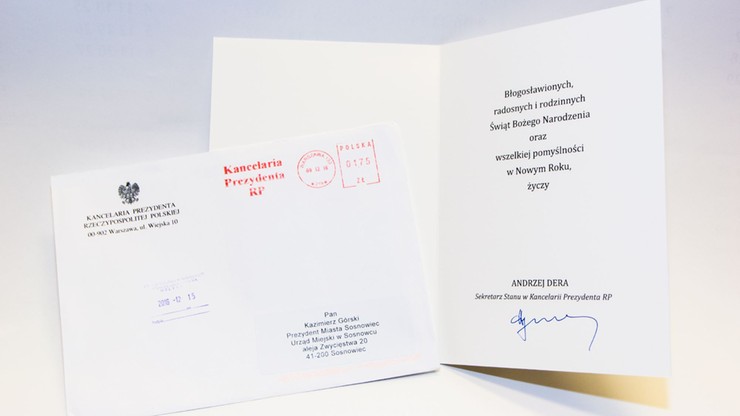 KANCELARIA PREZYDENTA
RZECZYPOSPOLITEJ POLSKIEJ
00-902 Warszawa, ul. Wiejska 10
Kancelaria
Prezydenta
RP
WARSZAWA
POLSKA
0175
2016 -12- 15
Pan
Kazimierz Górski
Prezydent Miasta Sosnowiec
Urząd Miejski w Sosnowcu
aleja Zwycięstwa 20
41-200 Sosnowiec
Błogosławionych,
radosnych i rodzinnych
Świąt Bożego Narodzenia
oraz
wszelkiej pomyślności
w Nowym Roku,
życzy
ANDRZEJ DERA
Sekretarz Stanu w Kancelarii Prezydenta RP